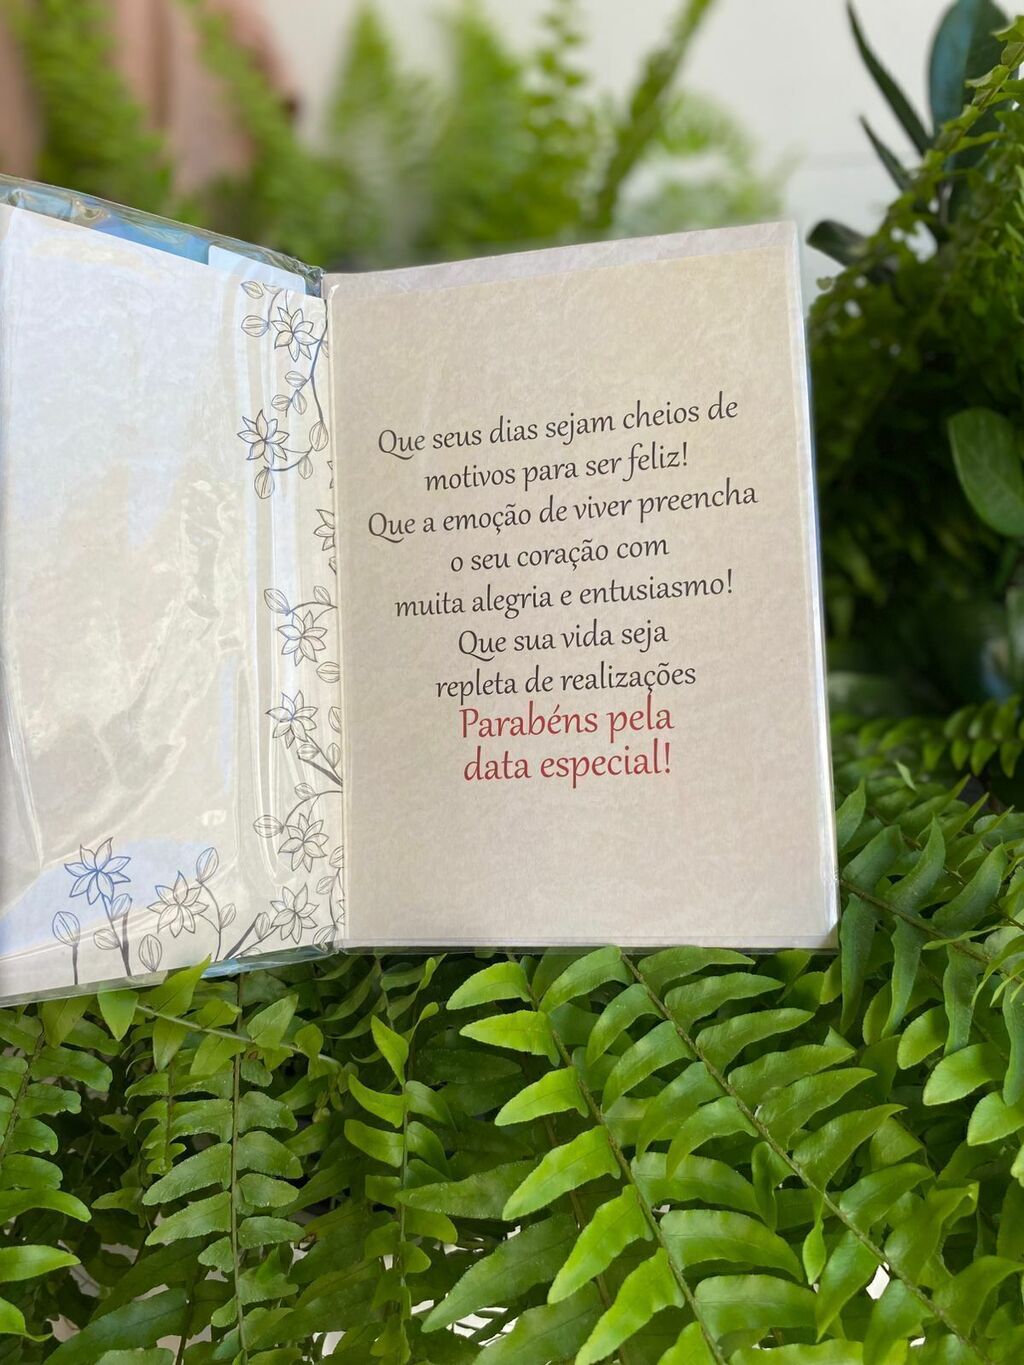 Que seus dias sejam cheios de
motivos para ser feliz!
Que a emoção de viver preencha
o seu coração com
muita alegria e entusiasmo!
Que sua vida seja
repleta de realizações
Parabéns pela
data especial!